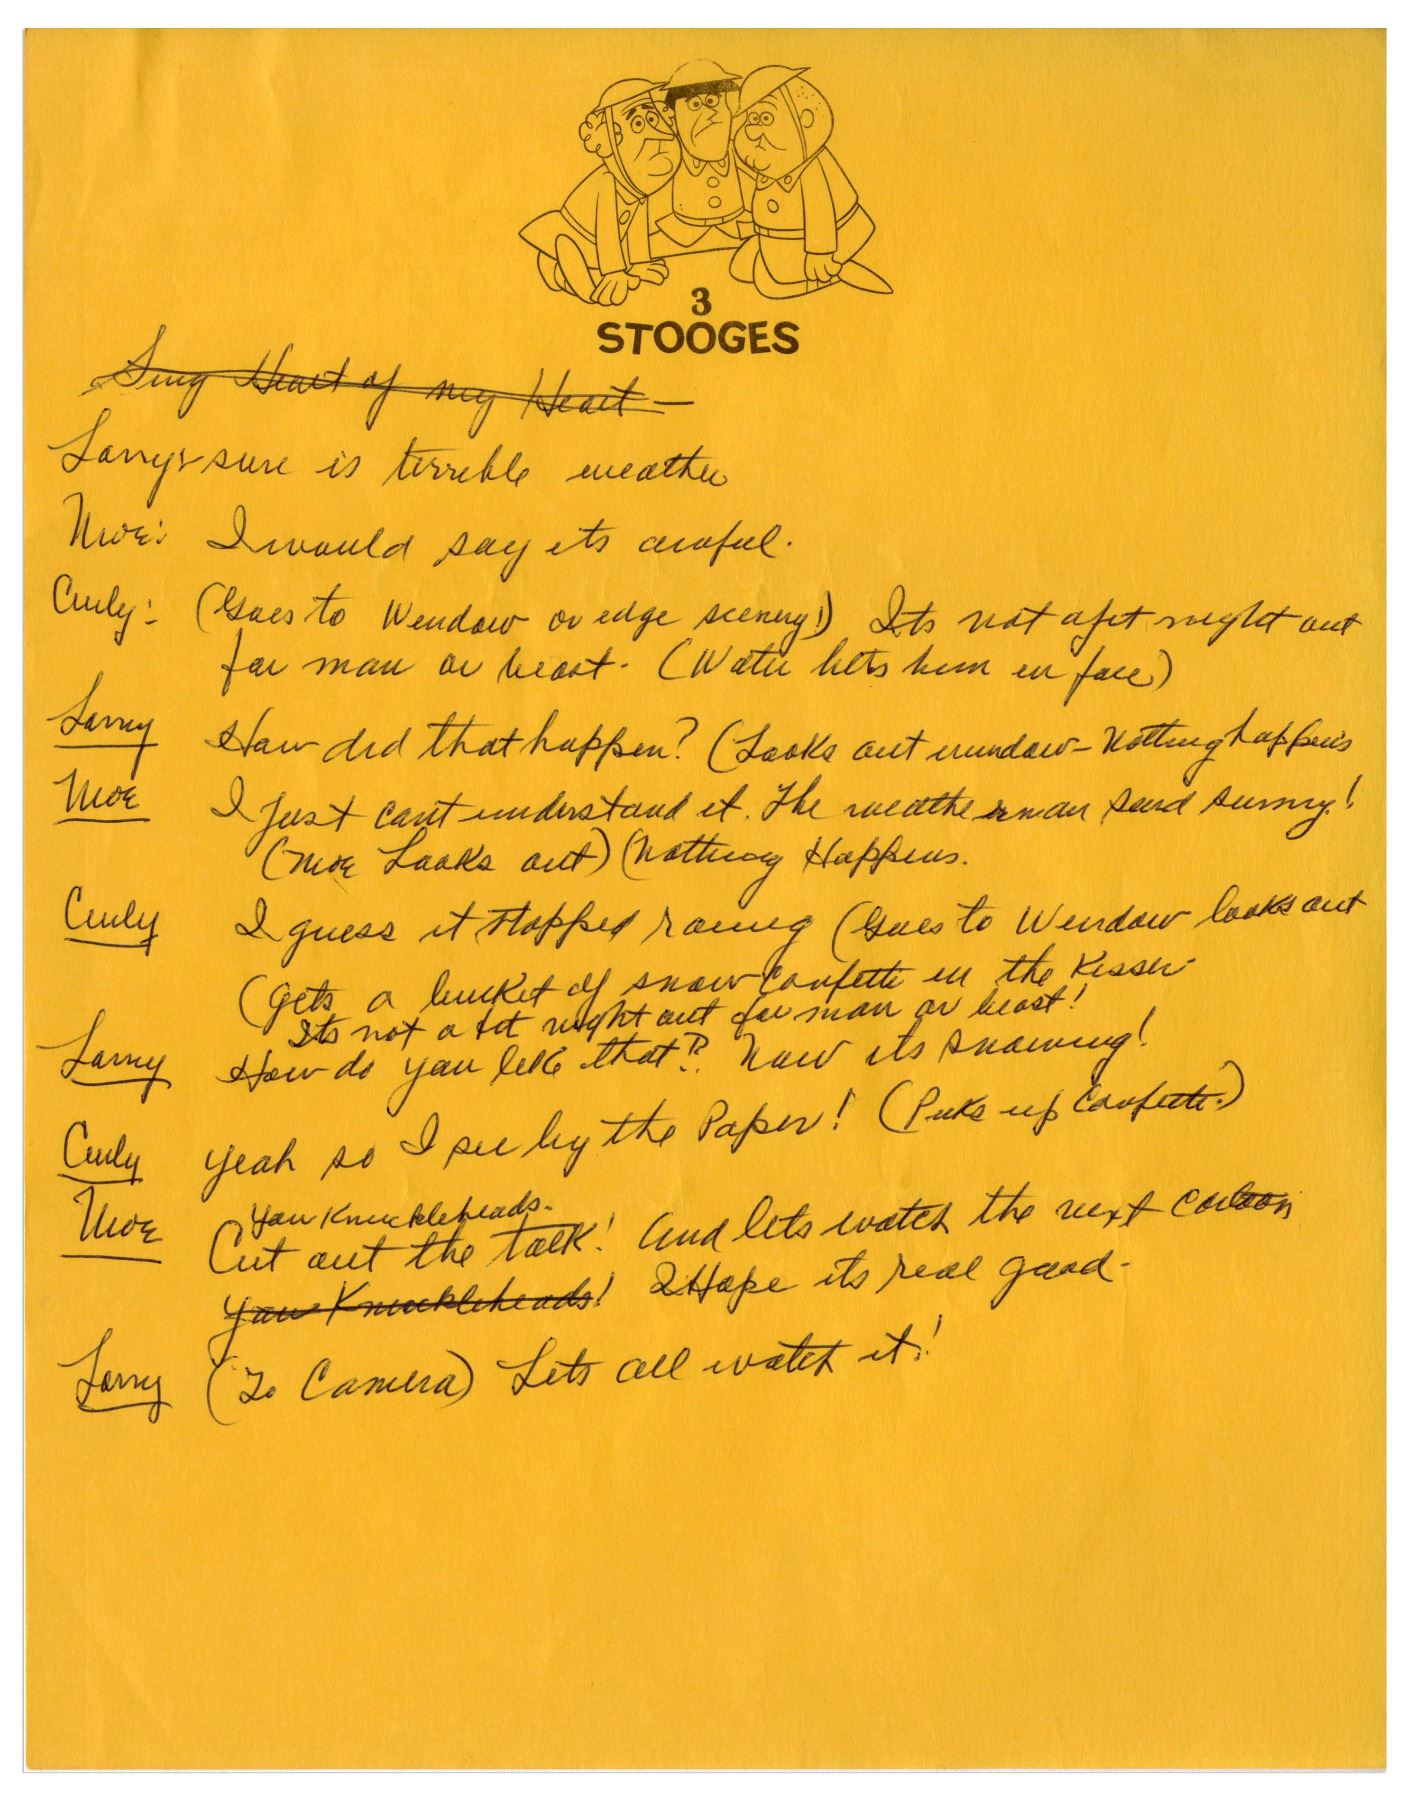 3
STOOGES
Sing Heart of my Heart —
Larry: sure is terrible weather
Moe: I would say its awful.
Curly: (Goes to Window or edge scenery!) Its not a fit night out
for man or beast. (Water hits him in face)
Larry How did that happen? (Looks out window - Nothing happens
Moe I Just cant understand it. The weatherman said sunny!
(Moe Looks out) (Nothing Happens.
Curly I guess it stopped raing (Goes to Window looks out
(gets a bucket of snow confetti in the Kisser
Its not a fit night out for man or beast!
Larry How do you like that? Now its snowing!
Curly Yeah so I see by the Paper! (Picks up Confetti.)
You Knuckleheads.
Moe Cut out the talk! And lets watch the next cartoon
You Knuckleheads! I Hope its real good.
Larry (To Camera) Lets all watch it!